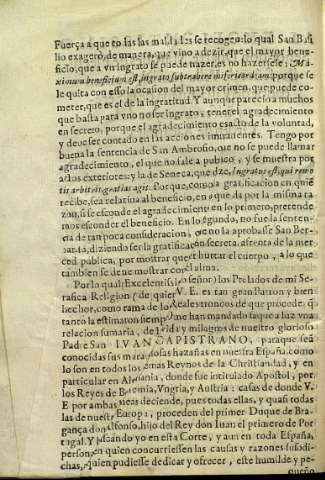 Fuerça a que to las las maldades se recogen: lo qual San Basi
lio exagerò, de manera, que vino a dezir, que el mayor bene-
ficio, que a vn ingrato se puede hazer, es no hazersele: Ma-
ximum beneficium est, ingrato subtrahere misericordiam: porque se
le quita con esso la ocasion del mayor crimen, que puede co-
meter, que es el de la ingratitud. Y aunque pareciò a muchos
que basta para vno no ser ingrato, tener el agradecimiento
en secreto, porque el agradecimiento es acto de la voluntad,
y deue ser contado en las acciones immanentes. Tengo por
buena la sentencia de San Ambrosio, que no se puede llamar
agradecimiento, el que no sale a publico, y se muestra por
actos exteriores: y la de Seneca, que dze, Ingratus est, qui remo
tis arbitris gratias agit. Porque, como a gratificacion en quiẽ
recibe, sea relatiua al beneficio, en a que da por la misma ra
zon, si se esconde el agradecimiento en lo primero, pretende-
mos esconder el beneficio. En lo segundo, no fue la senten-
cia de tan poca consideracion, que no la aprobasse San Ber-
nardo, diziendo ser la gratificacion secreta, afrenta de la mer
ced publica, por mostrar que hurtar el cuerpo, a lo que
tambien se deue mostrar con el alma.
Por lo qual Excelentissimo señor, los Prelados de mi Se-
rafica Religion (de quien V. E. es tan gran Patron y bien
hechor, como rama de los Reales troncos de que procede, q̃
tanto la estimaron siempre) me han mandado saque a luz vna
relacion sumaria, de la vida y milagros de nuestro glorioso
Padre San IVAN CAPISTRANO, para que seã
conocidas sus marauillosas hazañas en nuestra España, como
lo son en todos los demas Reynos de la Christiandad, y en
particular en Alemania, donde fue intitulado Apostol, por
los Reyes de Boemia, Vngria, y Austria: casas de donde V.
E. por ambas lineas deciende, pues todas ellas, y quasi todas
las de nuestra Europa, proceden del primer Duque de Bra-
gança don Alfonso, hijo del Rey don Iuan el primero de Por
tugal. Y buscando yo en esta Corte, y aun en toda España,
persona, en quien concurriessen las causas y razones susodi-
chas, a quien pudiesse dedicar y ofrecer, este humilde y pe-
queño